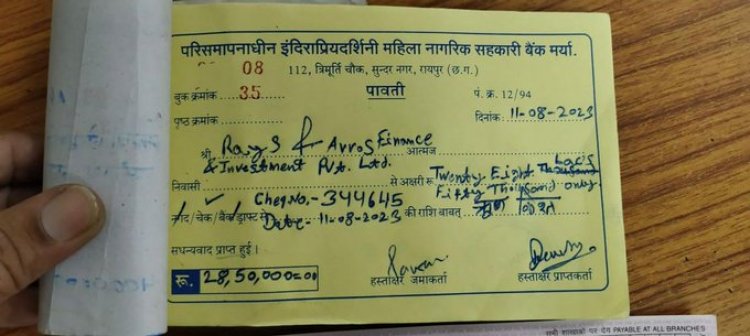 परिसमापनाधीन इंदिराप्रियदर्शिनी महिला नागरिक सहकारी बैंक मर्या.
08 112, त्रिमूर्ति चौक, सुन्दर नगर, रायपुर (छ.ग.)
बुक क्रमांक 35 पावती पं. क्र. 12/94
पृष्ठ क्रमांक दिनांक: 11-08-2023
श्री Finance आत्मज
& Investment Pvt. Ltd.
निवासी से अक्षरी रू. Twenty Eight Lacs
Fifty Thousand only
Cheq.No.- 344645
नगद/चेक/बैंक ड्राफ्ट से Date:- 11-08-2023 की राशि बाबत्
सधन्यवाद प्राप्त हुई।
रू. 28,50,000=00 हस्ताक्षर जमाकर्ता हस्ताक्षर प्राप्तकर्ता
सभी शाखाओं पर देय PAYABLE AT ALL BRANCHES